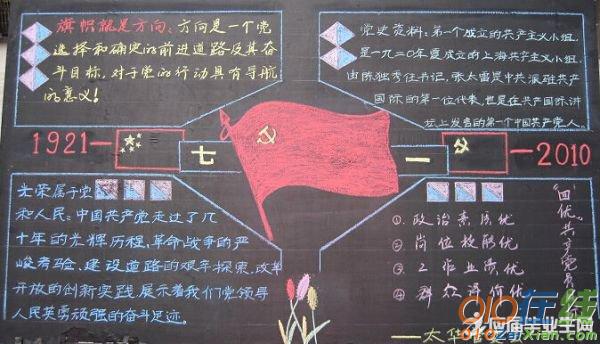 旗帜就是方向：方向是一个党
选择和确定的前进道路及其奋
斗目标，对于党的行动具有导航
的意义！
党史资料：第一个成立的共产主义小组，
是一九二〇年夏成立的上海共产主义小组，
由陈独秀任书记，张太雷是中共派驻共产
国际的第一位代表，也是在共产国际讲
坛上发言的第一个中国共产党人。
1921
七
一
2010
光荣属于党
和人民：中国共产党走过了几
十年的光辉历程，革命战争的严
峻考验、建设道路的艰辛探索、改革
开放的创新实践，展示着我们党领导
人民英勇顽强的奋斗足迹。
"四优"共产党员
①政治素质优
②岗位技能优
③工作业绩优
④群众评价优
——太华
010在线
010zaixian.com
应届毕业生网